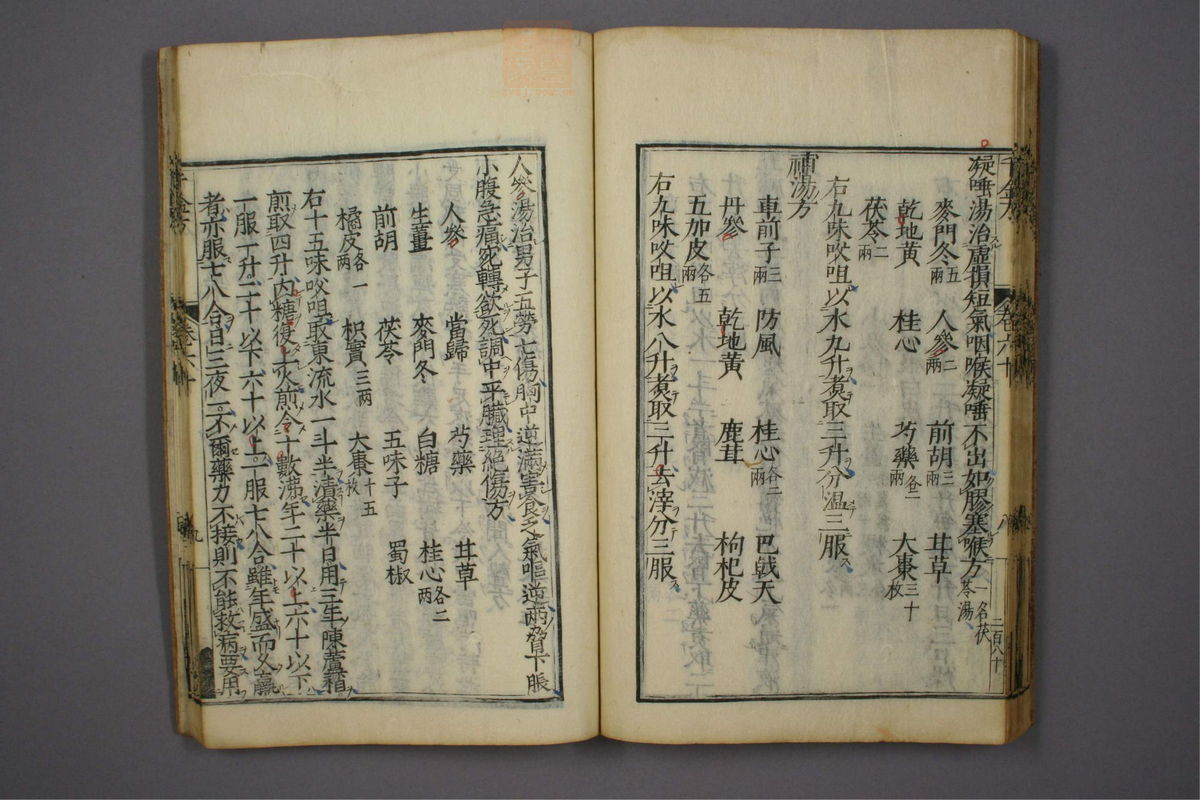 凝唾湯治虛損短氣咽喉凝唾不出如膠塞喉方一名茯苓湯
麥門冬五兩 人參二兩 前胡三兩 甘草
乾地黃 桂心 芍藥各一兩 大棗三十枚
茯苓二兩
右九味㕮咀以水九升煑取三升分溫三服
補湯方
車前子三兩 防風 桂心各二兩 巴戟天
丹參 乾地黃 鹿茸 枸杞皮
五加皮各五兩
右九味㕮咀以水八升煑取三升去滓分三服
人參湯治男子五勞七傷胷中逆滿害食乏氣嘔逆兩脅下脹
小腹急痛死轉欲死調中平臟理絕傷方
人參 當歸 芍藥 甘草
生薑 麥門冬 白糖 桂心各二兩
前胡 茯苓 五味子 蜀椒
橘皮各一兩 枳實三兩 大棗十五枚
右十五味㕮咀取東流水一斗半漬藥半日用三年陳蘆稍
煎取四升内糖復上火煎令十數沸年二十以上六十以下
一服一升二十以下六十以上一服七八合雖年盛而久羸
者亦服七八合日三夜一不爾藥力不接則不能救病要用